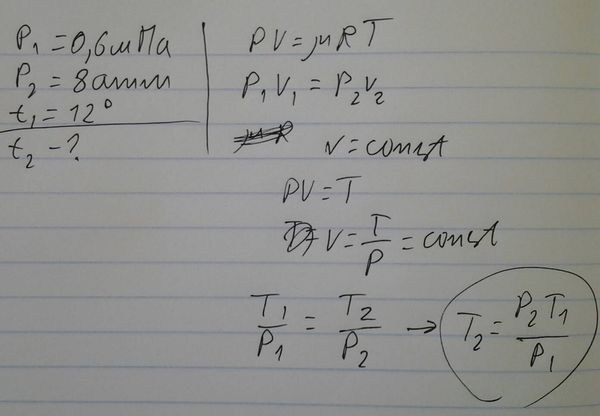 P₁ = 0,6 мПа
P₂ = 8 атм
t₁ = 12°
t₂ - ?
PV = μRT
P₁V₁ = P₂V₂
V = const
PV = T
V = T/P = const
T₁/P₁ = T₂/P₂ → T₂ = P₂T₁/P₁